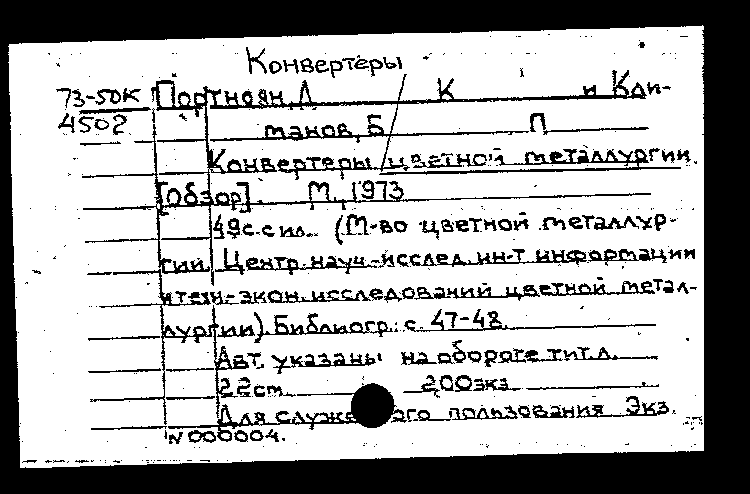 Конвертеры
73-50К Портноян, Д К и Кди-
4502 манов, Б П
Конвертеры цветной металлургии.
[Обзор]. М., 1973
49с. с ил. (М-во цветной металлур-
гии. Центр. науч.-исслед. ин-т информации
и техн.-экон. исследований цветной метал-
лургии). Библиогр.: с. 47-48.
Авт. указаны на обороте тит. л.
22см 200экз
Для служе ого пользования Экз.
N 000004.